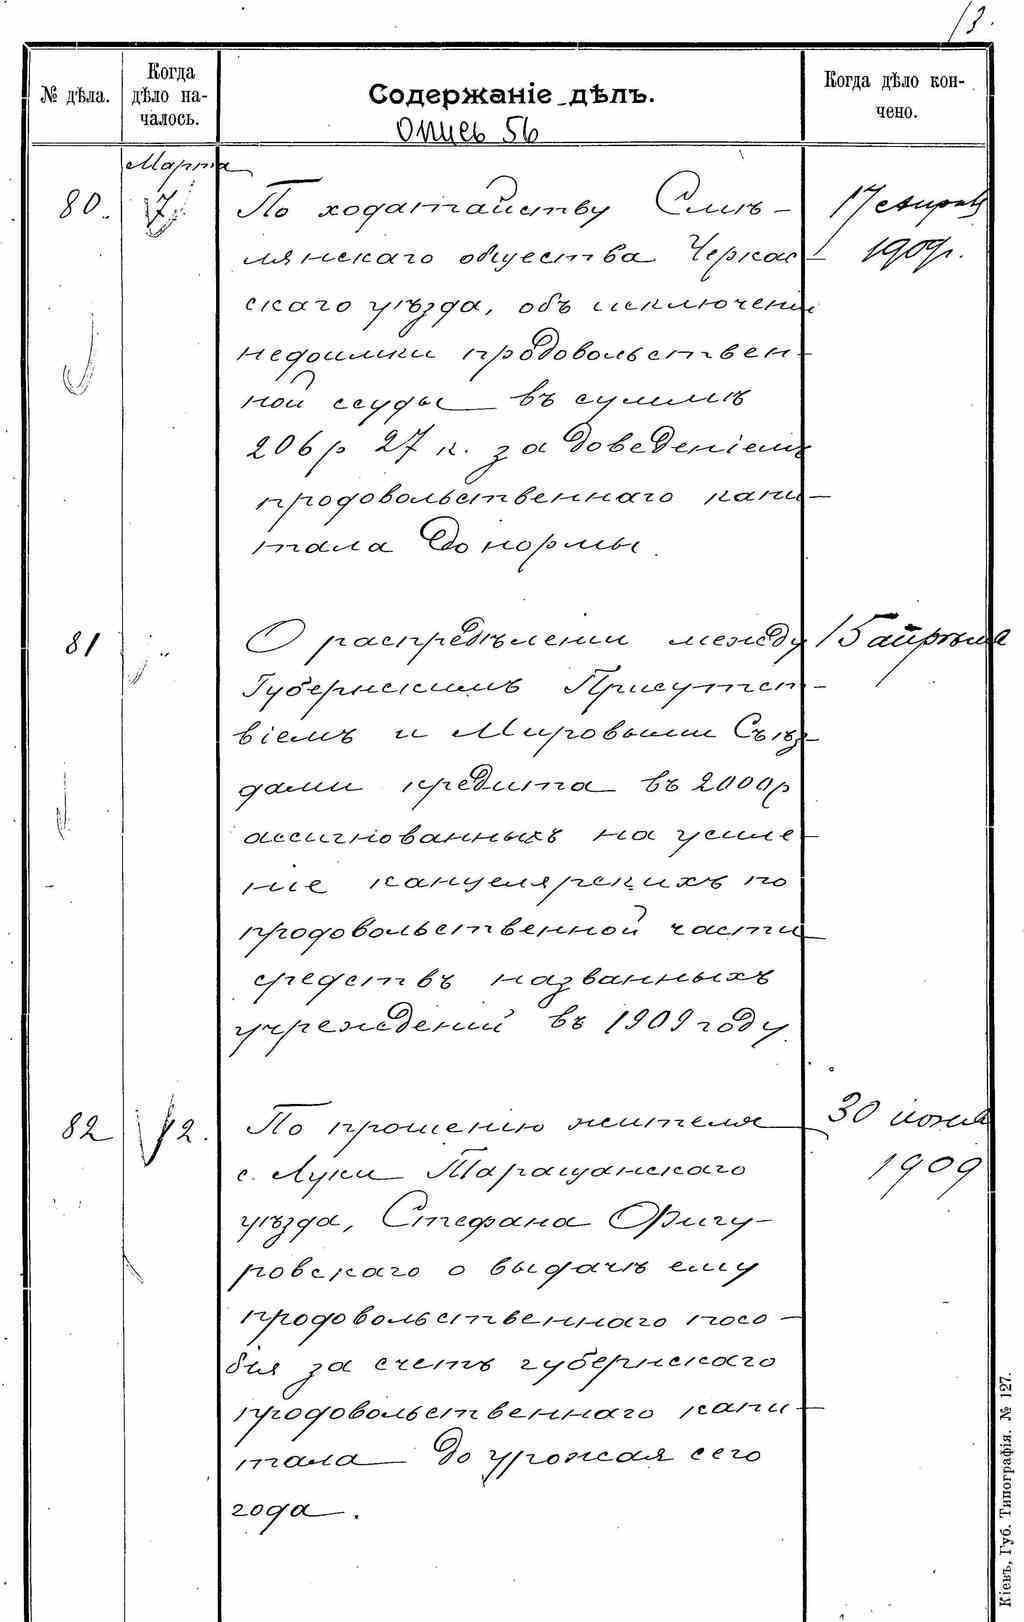 13.
№ дѣла.
Когда дѣло началось.
Содержаніе дѣлъ.
Опись 56
Когда дѣло кончено.
Марта
80. 7 По ходатайству Смѣ- 17 апрѣля
лянскаго общества Черкас- 1909г.
скаго уѣзда, объ исключеніи
недоимки продовольствен-
ной ссуды въ суммѣ
206 р 27 к. за доведеніемъ
продовольственнаго капи-
тала до нормы.
81 " О распредѣленіи между 15 апрѣля
Губернскимъ Присутст-
віемъ и Мировыми Съѣз-
дами кредита въ 2000 р
ассигнованныхъ на усиле-
ніе канцелярскихъ по
продовольственной части
средствъ названныхъ
учрежденій въ 1909 году.
82 12. По прошенію жителя 30 іюня
с. Луки Таращанскаго 1909
уѣзда, Стефана Фигу-
ровскаго о выдачѣ ему
продовольственнаго посо-
бія за счетъ губернскаго
продовольственнаго капи-
тала до урожая сего
года.
Кіевъ, Губ. Типографія. № 127.